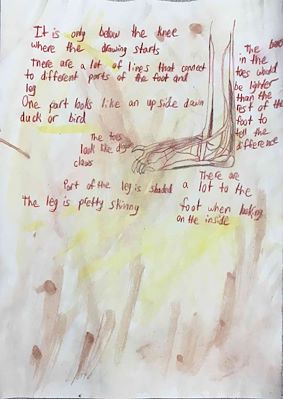 It is only below the knee
where the drawing starts
there are a lot of lines that connect
to different parts of the foot and
leg
One part looks like an upside down
duck or bird
The toes
look like dog
claws
The bones
in the
toes would
be lighter
than the
rest of the
foot to
tell the
difference
Part of the leg is shaded
The leg is pretty skinny
There are
a lot to the
foot when looking
on the inside